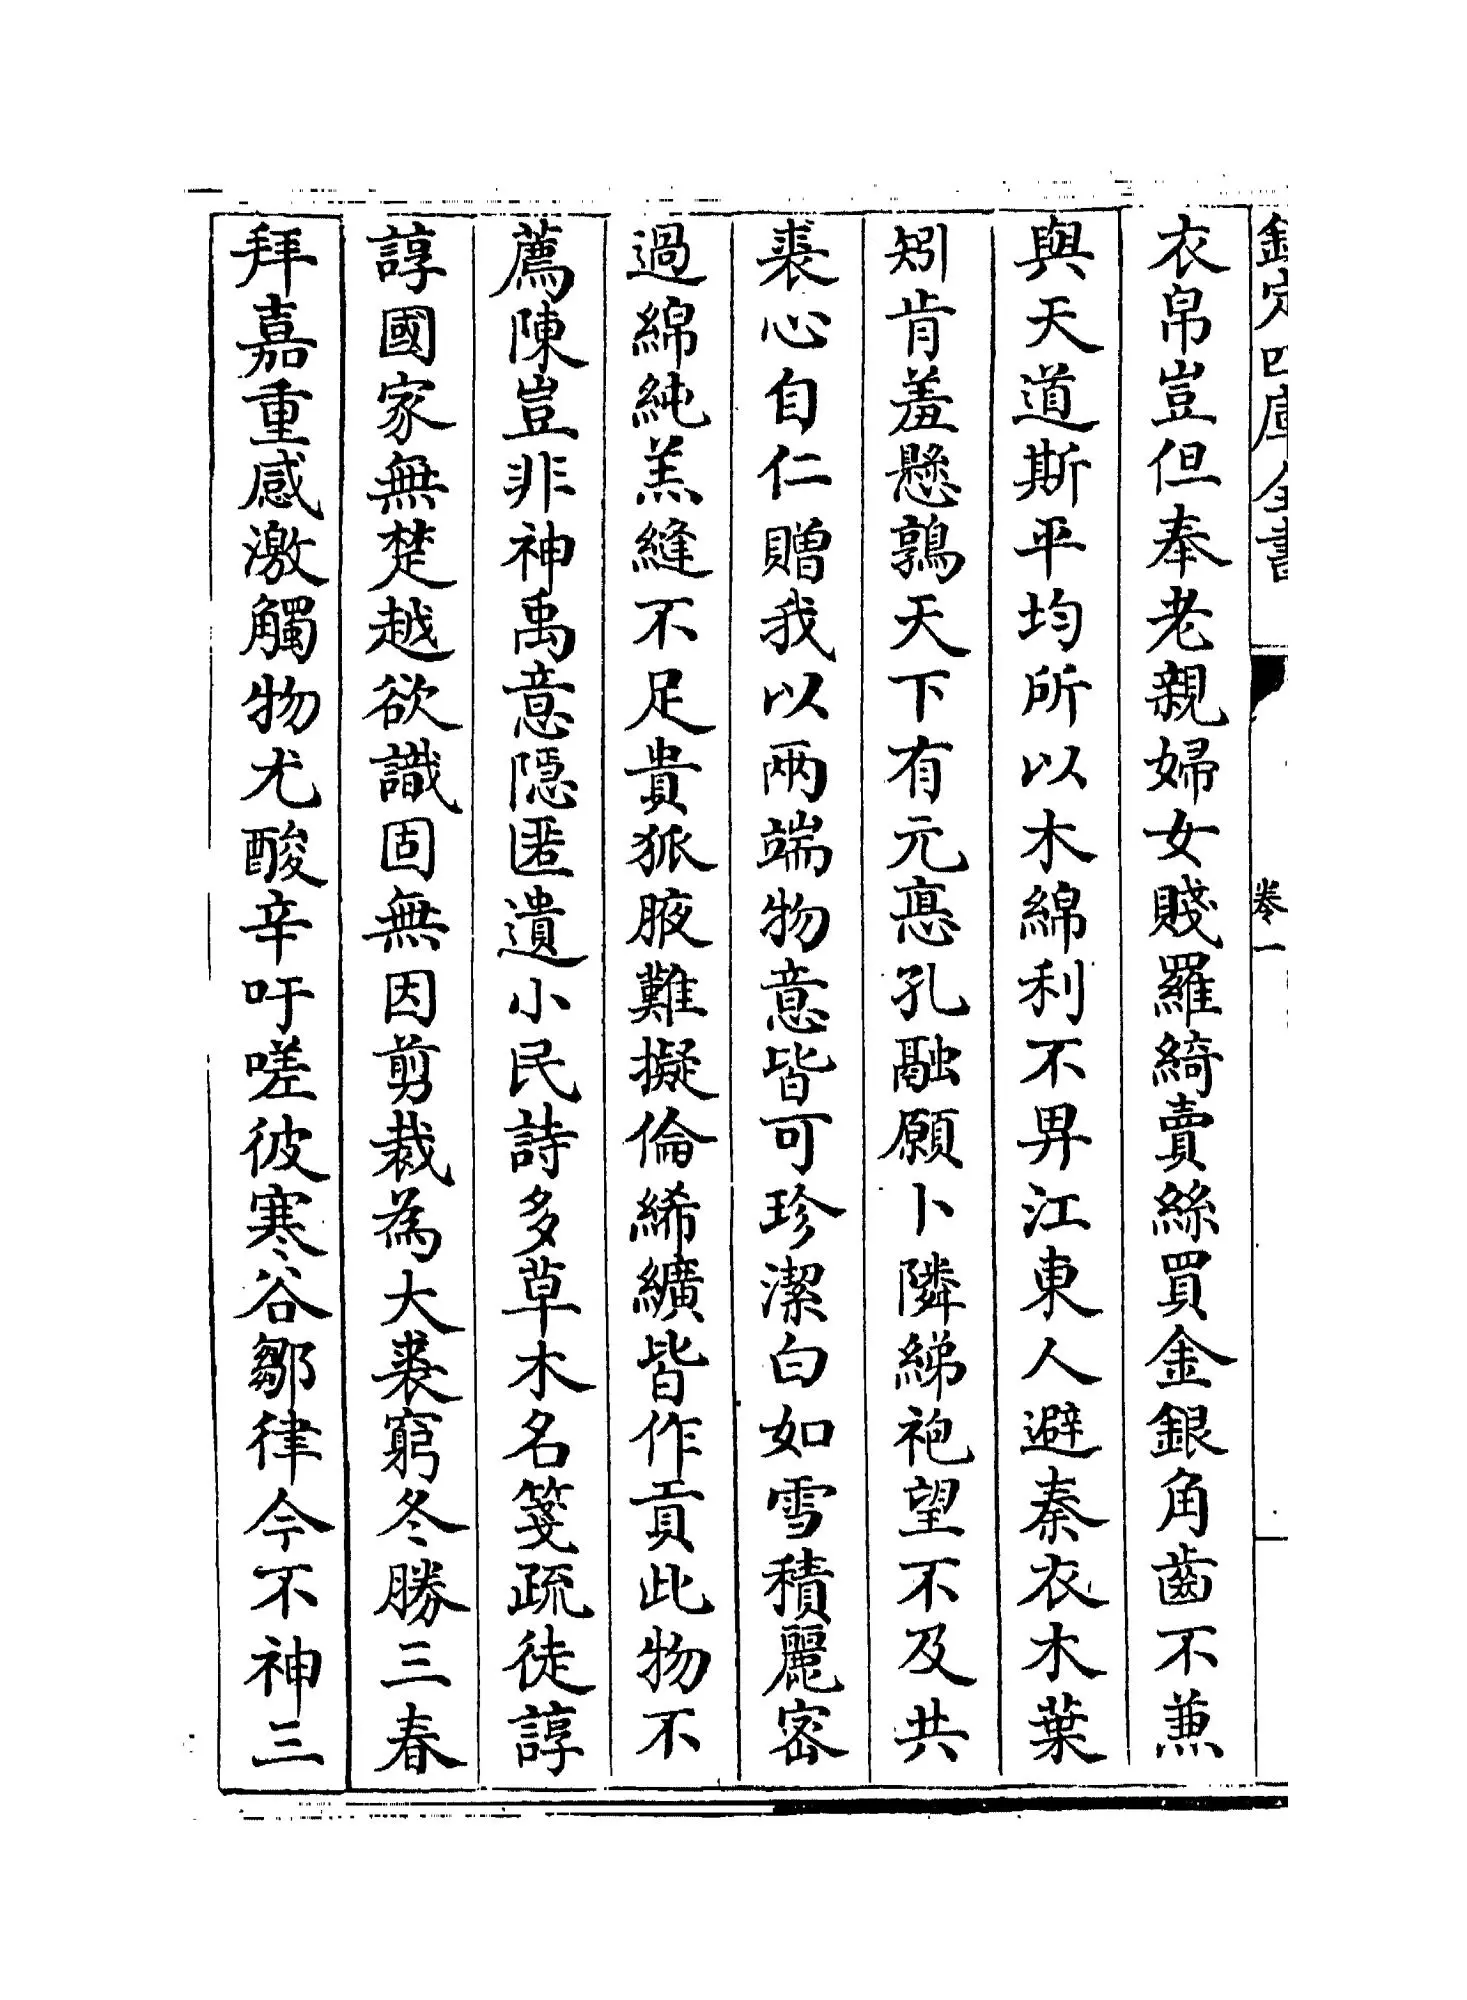 欽定四庫全書 卷一
衣帛豈但奉老親婦女賤羅綺賣絲買金銀角齒不兼
與天道斯平均所以木綿利不畀江東人避秦衣木葉
矧肯羞懸鶉天下有元悳孔融願卜隣綈袍望不及共
裘心自仁贈我以兩端物意皆可珍潔白如雪積麗密
過綿純羔縫不足貴狐腋難擬倫絺纊皆作貢此物不
薦陳豈非神禹意隱匿遺小民詩多草木名箋疏徒諄
諄國家無楚越欲識固無因剪裁為大裘窮冬勝三春
拜嘉重感激觸物尤酸辛吁嗟彼寒谷鄒律今不神三